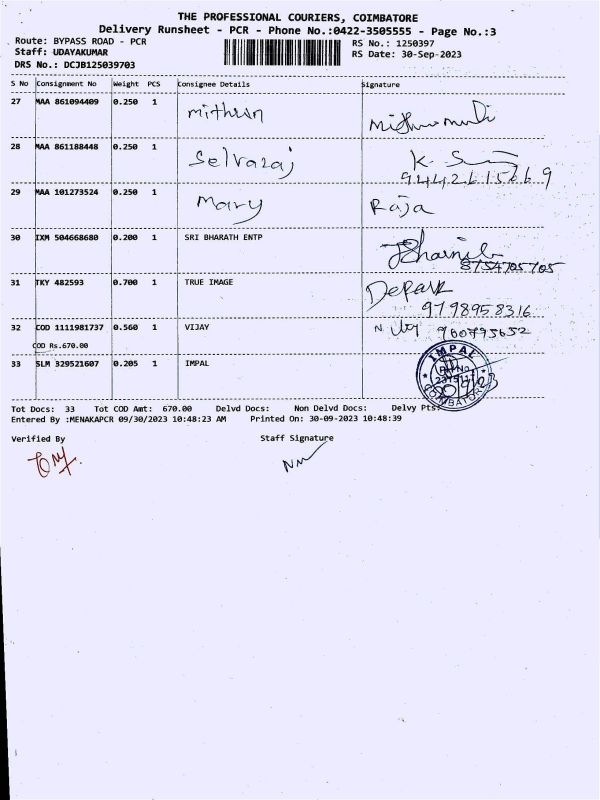 THE PROFESSIONAL COURIERS, COIMBATORE
Delivery Runsheet - PCR - Phone No.:0422-3505555 - Page No.:3
Route: BYPASS ROAD - PCR RS No.: 1250397
Staff: UDAYAKUMAR RS Date: 30-Sep-2023
DRS No.: DCJB125039703
S No Consignment No Weight PCS Consignee Details Signature
27 MAA 861094409 0.250 1 Mithran
28 MAA 861188448 0.250 1 Selvaraj K.
29 MAA 101273524 0.250 1 Mary Raja
30 IXM 504668680 0.200 1 SRI BHARATH ENTP 8754705705
31 TKY 482593 0.700 1 TRUE IMAGE Depak
9798958316
32 COD 1111981737 0.560 1 VIJAY
COD Rs.670.00
33 SLM 329521607 0.205 1 IMPAL IMPAL COIMBATORE
Tot Docs: 33 Tot COD Amt: 670.00 Delvd Docs: Non Delvd Docs: Delvy Pts:
Entered By :MENAKAPCR 09/30/2023 10:48:23 AM Printed On: 30-09-2023 10:48:39
Verified By Staff Signature